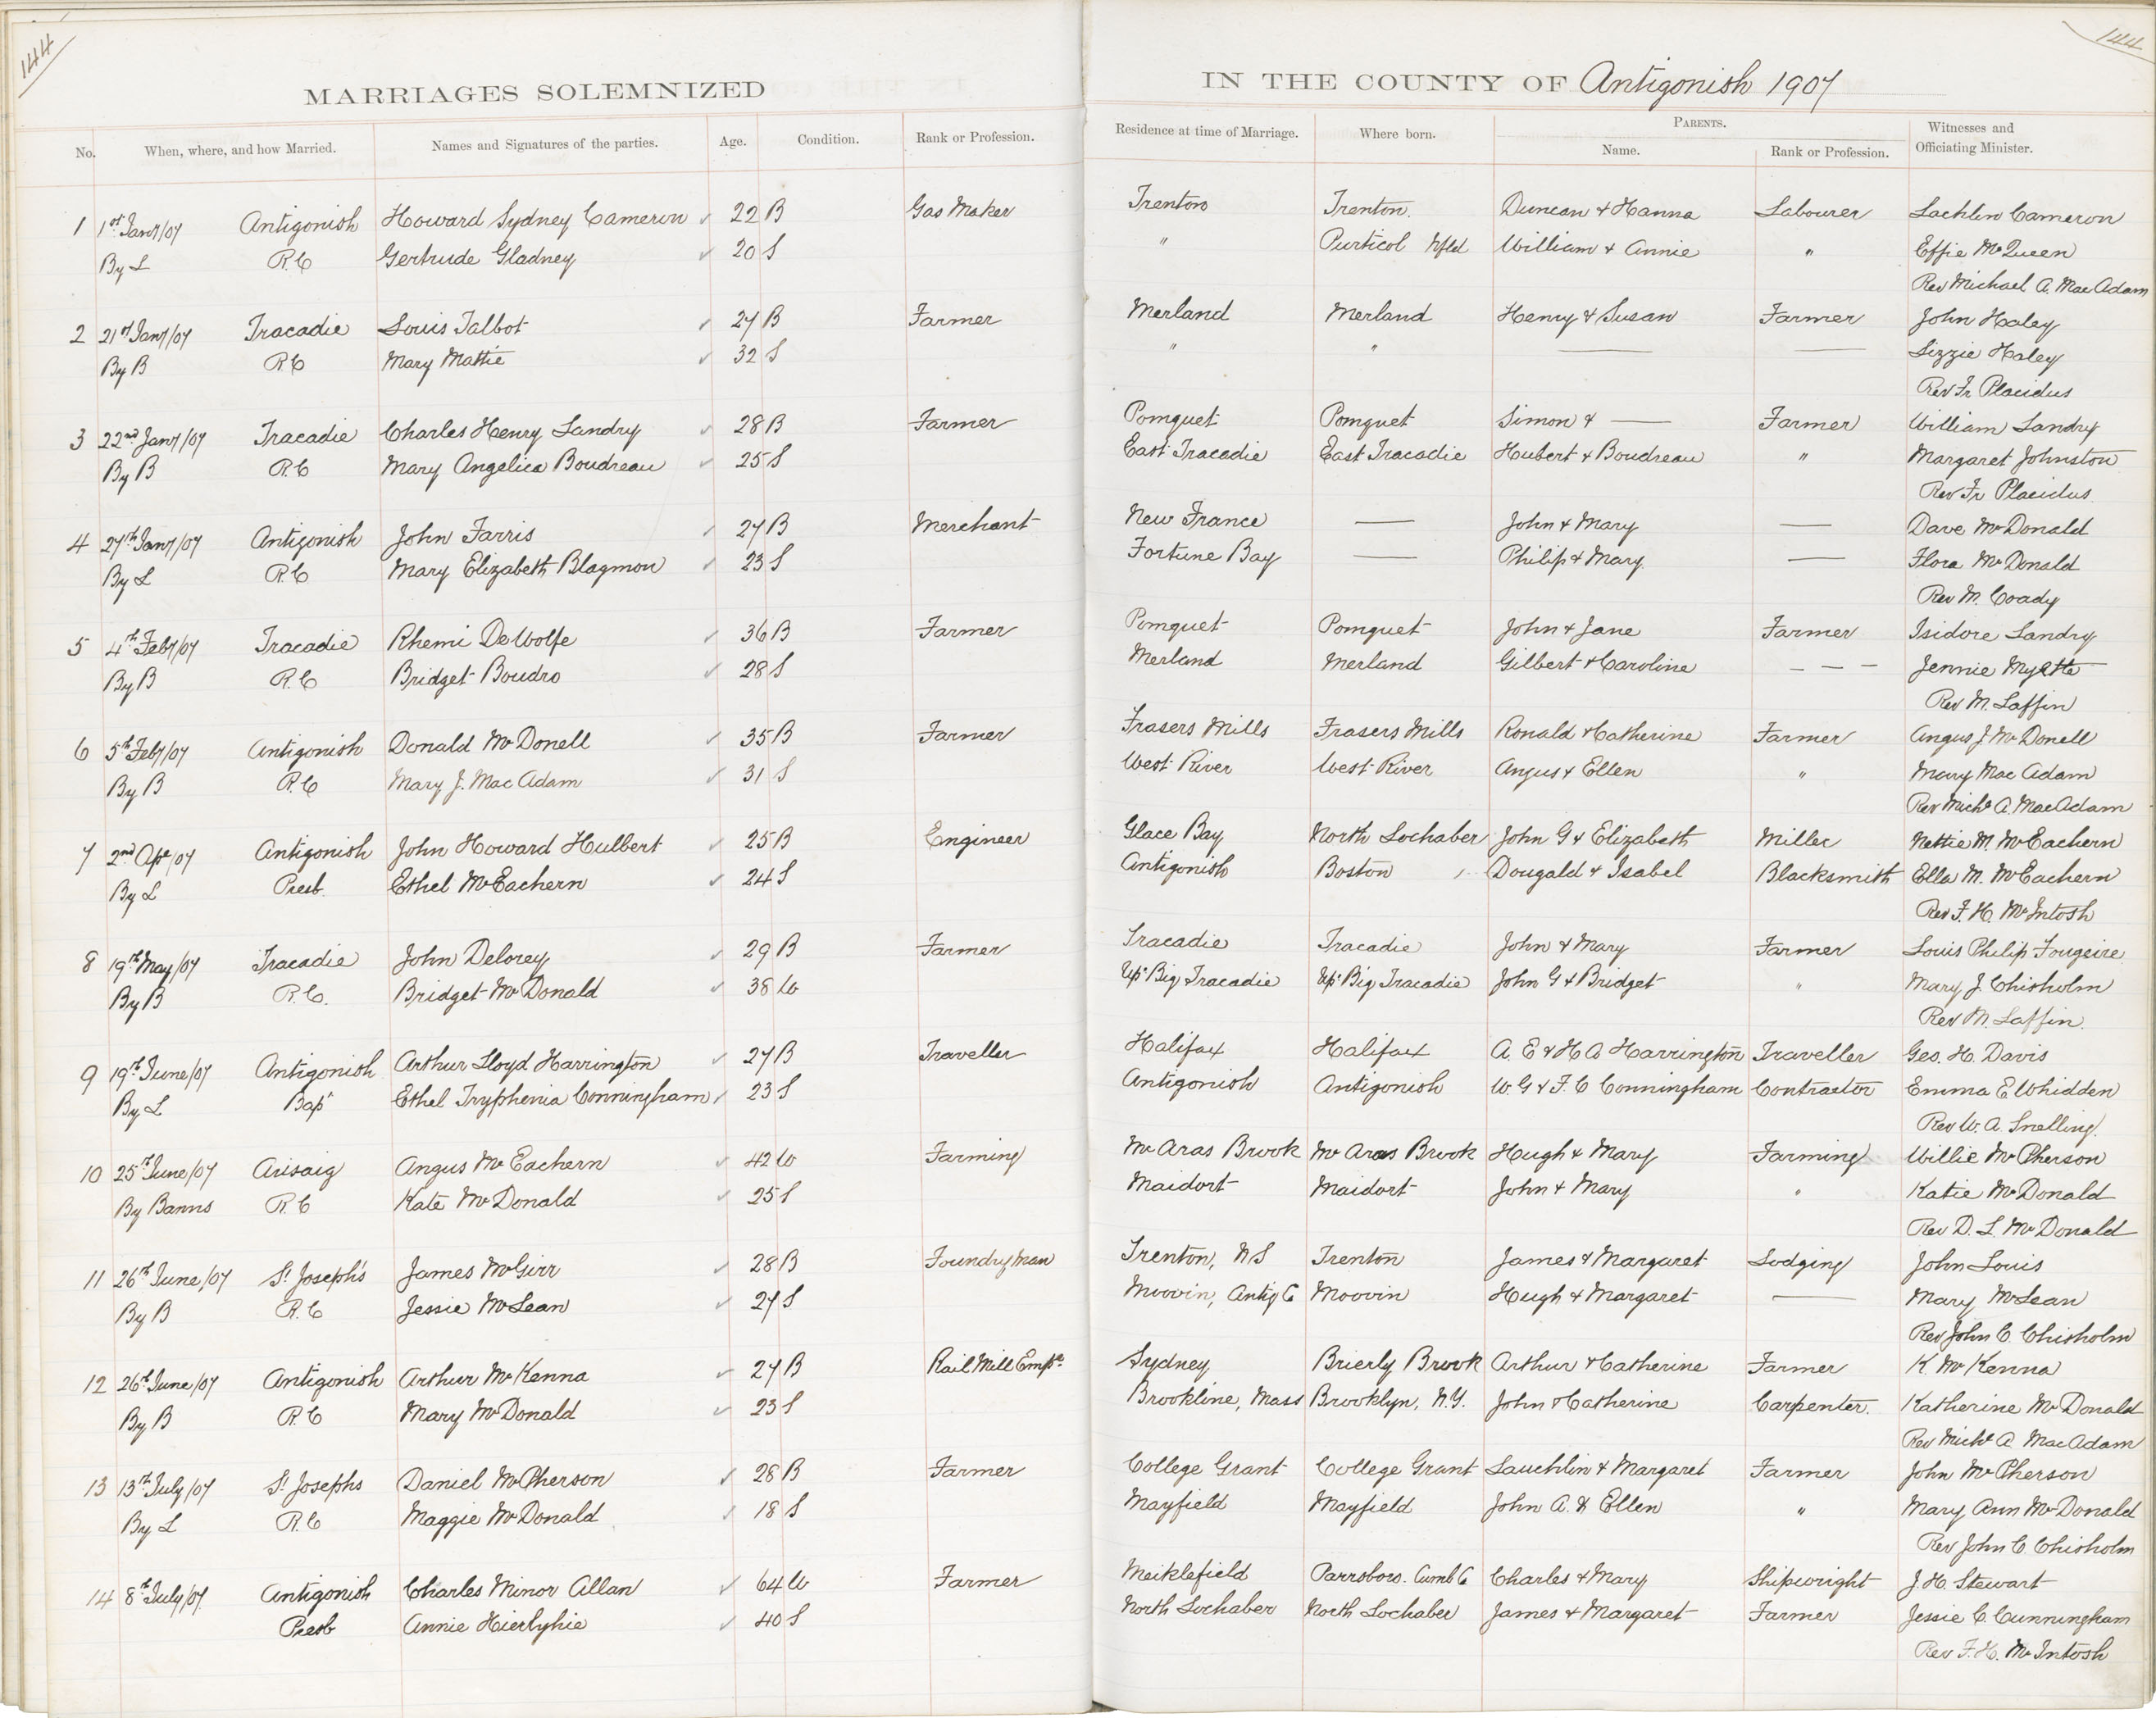 144
144
MARRIAGES SOLEMNIZED IN THE COUNTY OF Antigonish 1907
No. When, where, and how Married. Names and Signatures of the parties. Age. Condition. Rank or Profession. Residence at time of Marriage. Where born. PARENTS. Name. Rank or Profession. Witnesses and Officiating Minister.
1 1st Jany/07 Antigonish Howard Sydney Cameron 22 B Gas Maker Trenton Trenton. Duncan & Hanna Labourer Lachlin Cameron
By L R.C Gertrude Gladney 20 S " Purticol Nfld William & Annie " Effie McQueen
Rev Michael A. MacAdam
2 21st Jany/07 Tracadie Louis Talbot 27 B Farmer Merland Merland Henry & Susan Farmer John Haley
By B R.C Mary Mattie 32 S " " — — Lizzie Haley
Rev Fr Placidus
3 22nd Jany/07 Tracadie Charles Henry Landry 28 B Farmer Pomquet Pomquet Simon & — Farmer William Landry
By B R.C Mary Angelica Boudreau 25 S East Tracadie East Tracadie Hubert & Boudreau " Margaret Johnston
Rev Fr Placidus
4 27th Jany/07 Antigonish John Farris 27 B Merchant New France — John & Mary — Dave McDonald
By L R.C Mary Elizabeth Blagmon 23 S Fortune Bay — Philip & Mary — Flora McDonald
Rev M. Coady
5 4th Feby/07 Tracadie Rhemi DeWolfe 36 B Farmer Pomquet Pomquet John & Jane Farmer Isidore Landry
By B R.C Bridget Boudro 28 S Merland Merland Gilbert & Caroline — — — Jennie Myette
Rev M. Laffin
6 5th Feby/07 Antigonish Donald McDonell 35 B Farmer Frasers Mills Frasers Mills Ronald & Catherine Farmer Angus J. McDonell
By B R.C Mary J. MacAdam 31 S West River West River Angus & Ellen " Mary MacAdam
Rev Michl A. MacAdam
7 2nd Apl/07 Antigonish John Howard Hulbert 25 B Engineer Glace Bay North Lochaber John G & Elizabeth Miller Nettie M. McEachern
By L Presb. Ethel McEachern 24 S Antigonish Boston Dougald & Isabel Blacksmith Ella M. McEachern
Rev F. H. McIntosh
8 19th May/07 Tracadie John Delorey 29 B Farmer Tracadie Tracadie John & Mary Farmer Louis Philip Fougeire
By B R.C. Bridget McDonald 38 W Upr Big Tracadie Upr Big Tracadie John G & Bridget " Mary J. Chisholm
Rev M. Laffin.
9 19th June/07 Antigonish Arthur Lloyd Harrington 27 B Traveller Halifax Halifax A. E & H A Harrington Traveller Geo. H. Davis
By L Bapt Ethel Tryphenia Conningham 23 S Antigonish Antigonish W. G & F. C Conningham Contractor Emma E Whidden
Rev W. A Snelling.
10 25th June/07 Arisaig Angus McEachern 42 W Farming McAras Brook McAras Brook Hugh & Mary Farming Willie McPherson
By Banns R.C Kate McDonald 25 S Maidort Maidort John & Mary " Katie McDonald
Rev D. L. McDonald
11 26th June/07 St Joseph's James McGirr 28 B Foundry Man Trenton, N S Trenton James & Margaret Lodging John Louis
By B R.C Jessie McLean 27 S Moovin, Antig C Moovin Hugh & Margaret — Mary McLean
Rev John C. Chisholm
12 26th June/07 Antigonish Arthur McKenna 27 B Rail Mill Emp. Sydney Brierly Brook Arthur & Catherine Farmer K. McKenna
By B R.C Mary McDonald 23 S Brookline, Mass Brooklyn, N.Y. John & Catherine Carpenter. Katherine McDonald
Rev Michl A MacAdam
13 13th July/07 St Josephs Daniel McPherson 28 B Farmer College Grant College Grant Lauchlin & Margaret Farmer John McPherson
By L R.C Maggie McDonald 18 S Mayfield Mayfield John A. & Ellen " Mary Ann McDonald
Rev John C Chisholm
14 8th July/07. Antigonish Charles Minor Allan 64 W Farmer Meiklefield Parrsboro. Cumb C Charles & Mary Shipwright J. H. Stewart
Presb Annie Hierlyhie 40 S North Lochaber North Lochaber James & Margaret Farmer Jessie C. Cunningham
Rev F. H. McIntosh